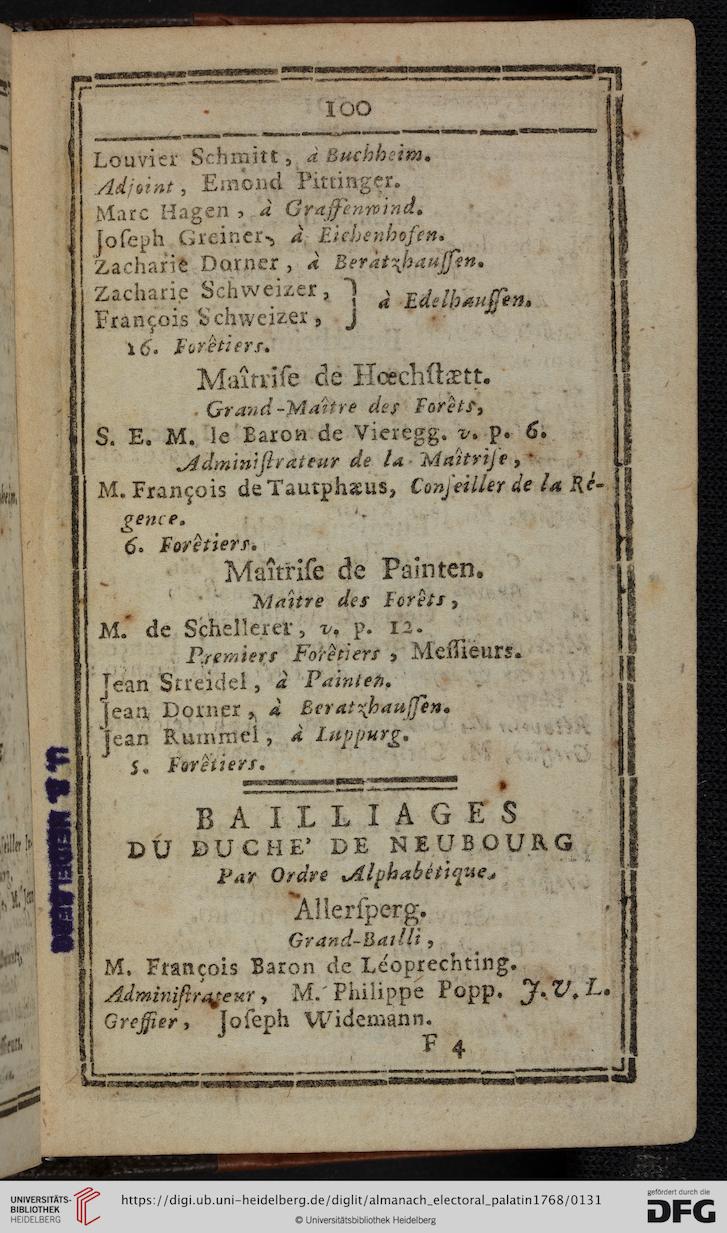 100
Louvier Schmitt, à Buchheim.
Adjoint, Emond Pittinger.
Marc Hagen, à Graffenwind.
Joſeph Greiner, à Eichenhofen.
Zacharie Dorner, à Beratzhauſſen.
Zacharie Schweizer, } à Edelhauſſen.
François Schweizer,
16. Forêtiers.
Maîtriſe de Hœchſtætt.
Grand-Maître des Forêts,
S. E. M. le Baron de Vieregg. v. p. 6.
Adminiſtrateur de la Maîtriſe,
M. François de Tautphæus, Conſeiller de la Ré-
gence.
6. Forêtiers.
Maîtriſe de Painten.
Maître des Forêts,
M. de Schellerer, v. p. 12.
Premiers Forêtiers, Meſſieurs.
Jean Streidel, à Painten.
Jean Dorner, à Beratzhauſſen.
Jean Rummel, à Luppurg.
5. Forêtiers.
BAILLIAGES
DU DUCHE' DE NEUBOURG
Par Ordre Alphabétique.
Allerſperg.
Grand-Bailli,
M. François Baron de Léoprechting.
Adminiſtrateur, M. Philippe Popp. J. V. L.
Greffier, Joſeph Widemann.
F 4
U. B. HEIDELBERG
UNIVERSITÄTS-
BIBLIOTHEK
HEIDELBERG
https://digi.ub.uni-heidelberg.de/diglit/almanach_electoral_palatin1768/0131
© Universitätsbibliothek Heidelberg
gefördert durch die
DFG